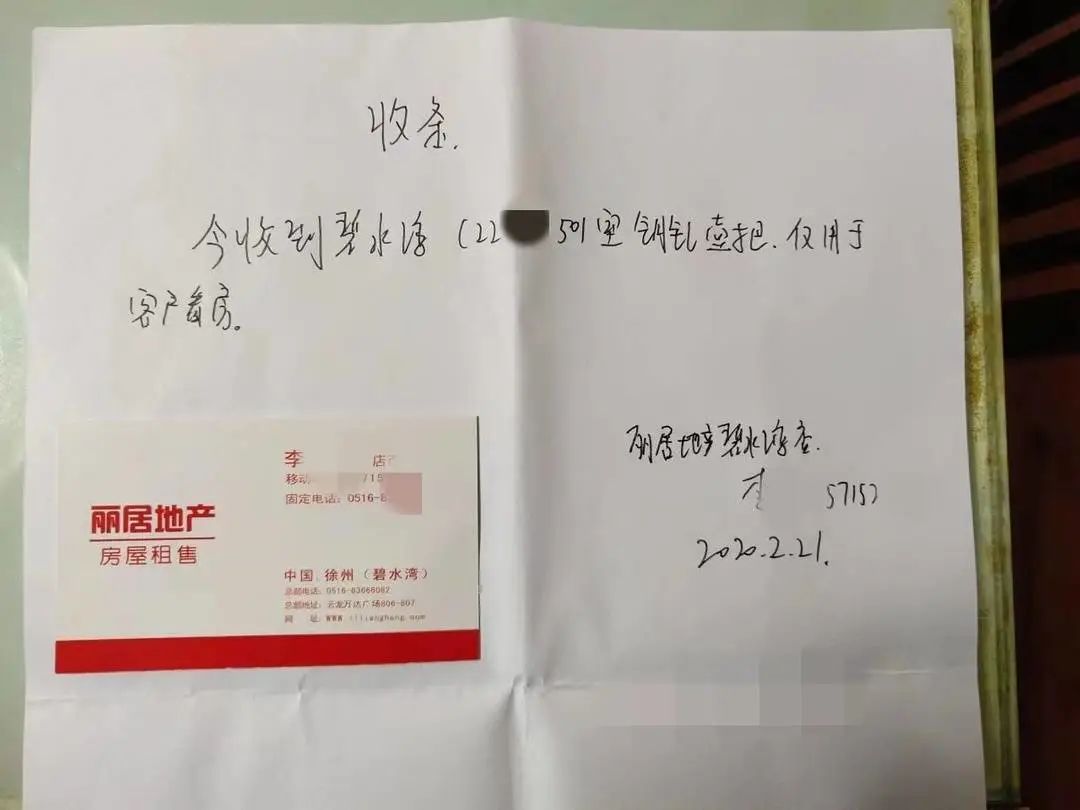 收条.
今收到碧水湾(22 501室钥匙壹把.仅用于
客户看房。
丽居地产碧水湾店.
李 57157
2020.2.21.
丽居地产
房屋租售
李 店
移动 715
固定电话：0516-8
中国.徐州（碧水湾）
总部电话：0516-83666082
总部地址：云龙万达广场806-807
网 址